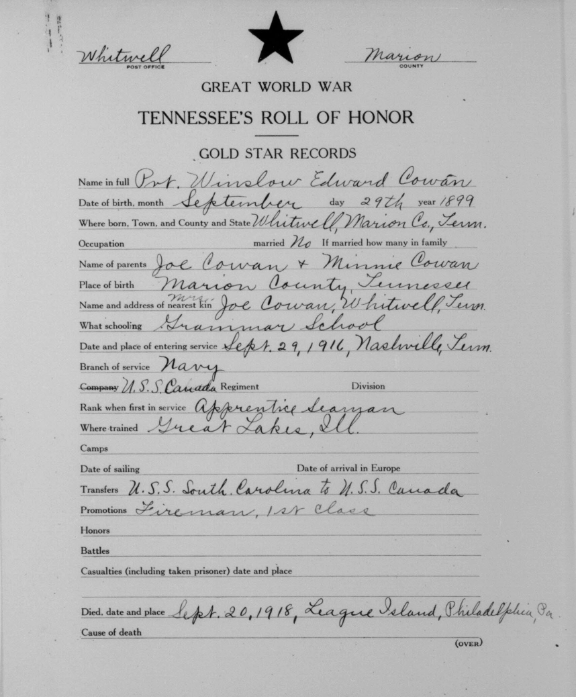 Whitwell Marion
POST OFFICE COUNTY
GREAT WORLD WAR
TENNESSEE'S ROLL OF HONOR
GOLD STAR RECORDS
Name in full Pvt. Winslow Edward Cowan
Date of birth, month September day 29th year 1899
Where born, Town, and County and State Whitwell, Marion Co., Tenn.
Occupation married No If married how many in family
Name of parents Joe Cowan + Minnie Cowan
Place of birth Marion County, Tennessee
Name and address of nearest kin Mrs. Joe Cowan, Whitwell, Tenn.
What schooling Grammar School
Date and place of entering service Sept. 29, 1916, Nashville, Tenn.
Branch of service Navy
Company U.S.S. Canada Regiment Division
Rank when first in service Apprentice Seaman
Where trained Great Lakes, Ill.
Camps
Date of sailing Date of arrival in Europe
Transfers U.S.S. South Carolina to U.S.S. Canada
Promotions Fireman, 1st class
Honors
Battles
Casualties (including taken prisoner) date and place
Died, date and place Sept. 20, 1918, League Island, Philadelphia, Pa.
Cause of death
(OVER)